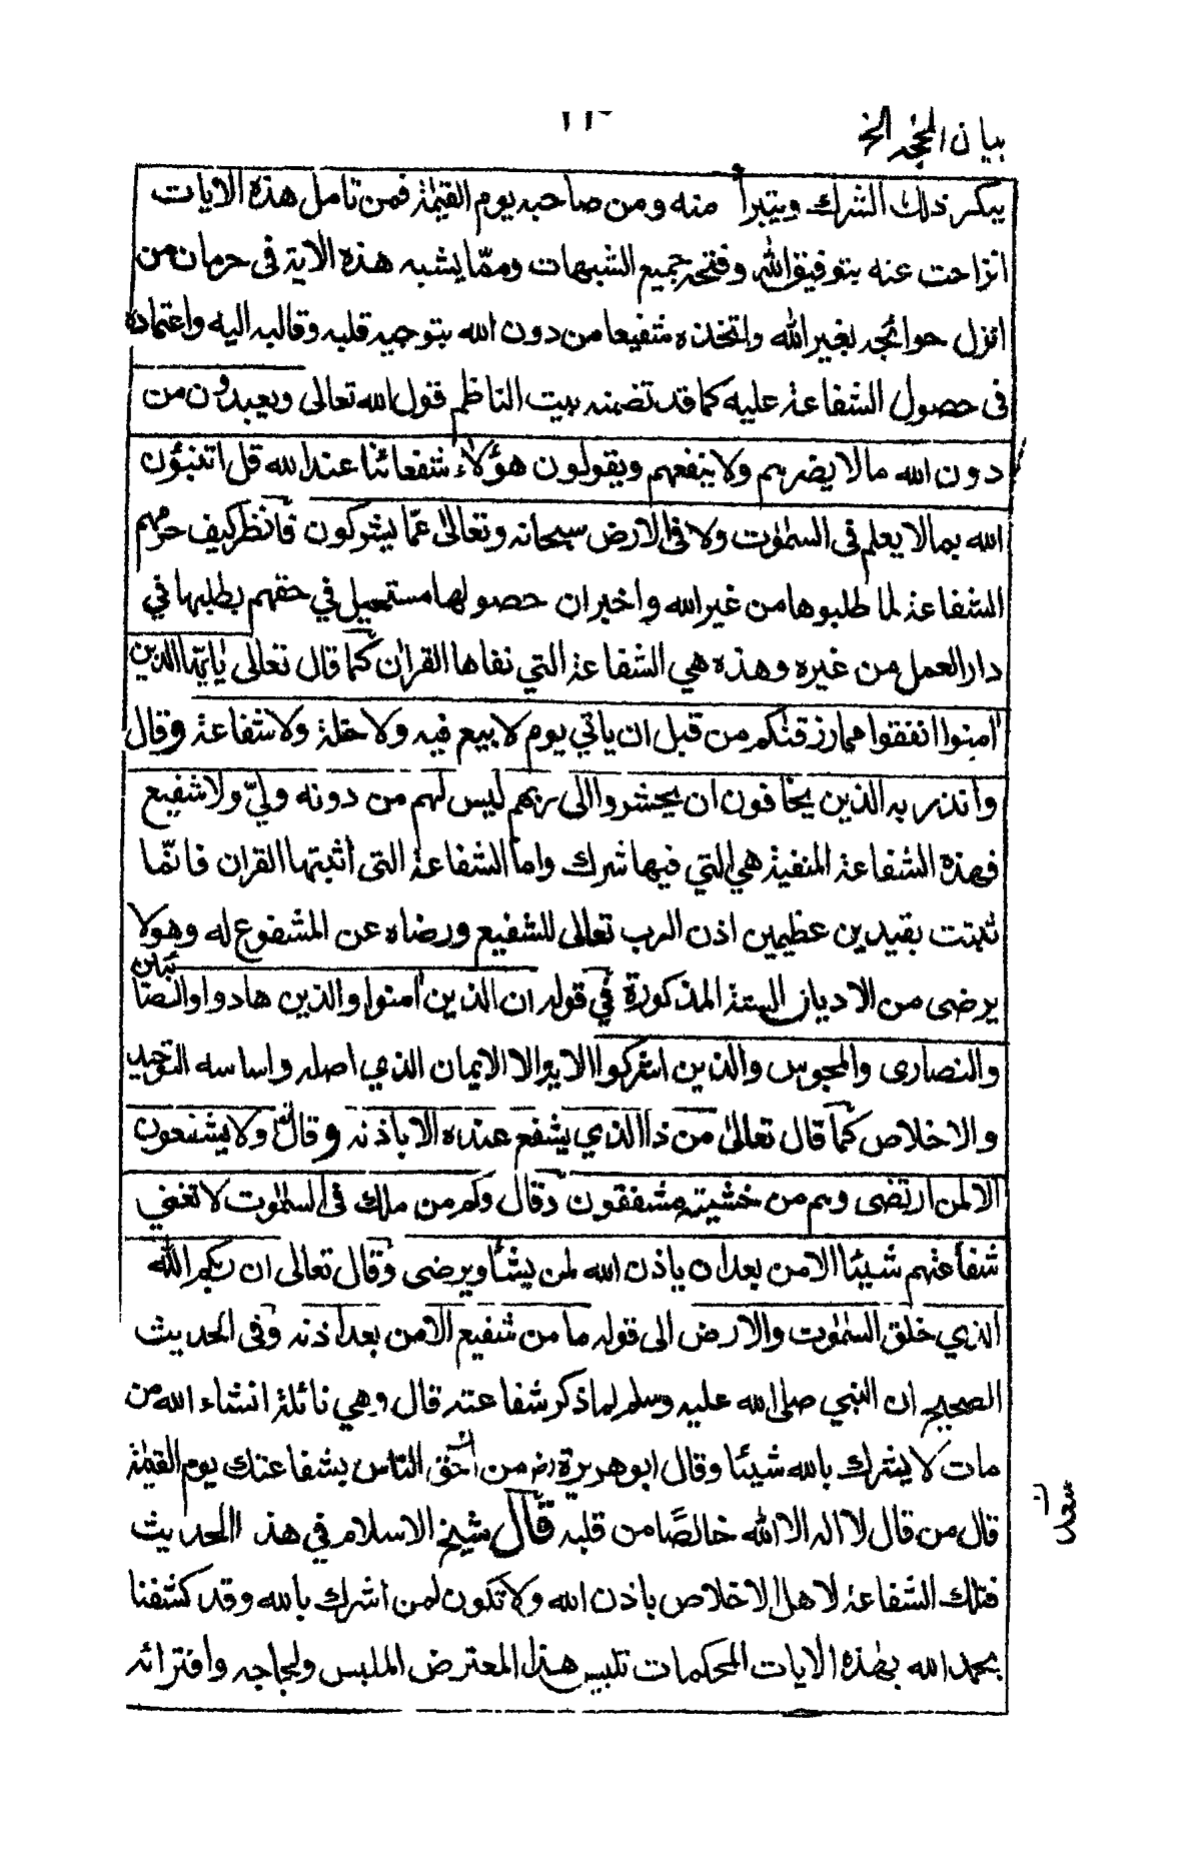 بيان المحجة الخ
ينكر ذلك الشرك ويتبرأ منه ومن صاحبه يوم القيٰمة فمن تامل هذه الايات
انزاحت عنه بتوفيق الله وفتحه جميع الشبهات وممّا يشبه هذه الاية فى حرمان من
انزل حوائجه بغير الله واتخذه شفيعا من دون الله بتوجيه قلبه وقالبه اليه واعتماده
فى حصول الشفاعة عليه كما قد تضمنه بيت الناظم قول الله تعالى ويعبدون من
دون الله مالا يضرهم ولا ينفعهم ويقولون هؤلاء شفعائنا عند الله قل اتنبؤن
الله بما لا يعلم فى السمٰوٰت ولا فى الارض سبحانه وتعالىٰ عمّا يشركون فانظر كيف حرمهم
الشفاعة لما طلبوها من غير الله واخبر ان حصولها مستحيل في حقهم بطلبها في
دار العمل من غيره وهذه هي الشفاعة التي نفاها القرآن كما قال تعالى يٰايّها الذين
اٰمنوا انفقوا مما رزقنٰكم من قبل ان ياتي يوم لا بيع فيه ولا خلة ولا شفاعة وقال
وانذر به الذين يخافون ان يحشروا الى ربهم ليس لهم من دونه وليّ ولا شفيع
فهذه الشفاعة المنفية هي التي فيها شرك واما الشفاعة التى أثبتها القران فانمّا
ثبتت بقيدين عظيمين اذن الرب تعالى للشفيع ورضاه عن المشفوع له وهو لا
يرضى من الاديان الستة المذكورة في قوله ان الذين اٰمنوا والذين هادوا والصابئين
والنصارى والمجوس والذين اشركوا الاية الا الايمان الذي اصله واساسه التوحيد
والاخلاص كما قال تعالىٰ من ذا الذي يشفع عنده الا باذنه وقال ولا يشفعون
الا لمن ارتضى وهم من خشيته مشفقون وقال وكم من ملك فى السمٰوٰت لا تغني
شفاعتهم شيئا الا من بعد ان ياذن الله لمن يشأ ويرضى وقال تعالى ان ربكم الله
الذي خلق السمٰوٰت والارض الى قوله ما من شفيع الا من بعد اذنه وفى الحديث
الصحيح ان النبي صلى الله عليه وسلم لما ذكر شفاعته قال وهي نائلة انشاء الله من
مات لا يشرك بالله شيئا وقال ابو هريرة رض من أحق الناس بشفاعتك يوم القيٰمة
قال من قال لا اله الا الله خالصًا من قلبه قال شيخ الاسلام في هذا الحديث
فتلك الشفاعة لاهل الاخلاص باذن الله ولا تكون لمن اشرك بالله وقد كشفنا
بحمد الله بهٰذه الايات المحكمات تلبيس هذا المعترض الملبس ولجاجه وافترائه